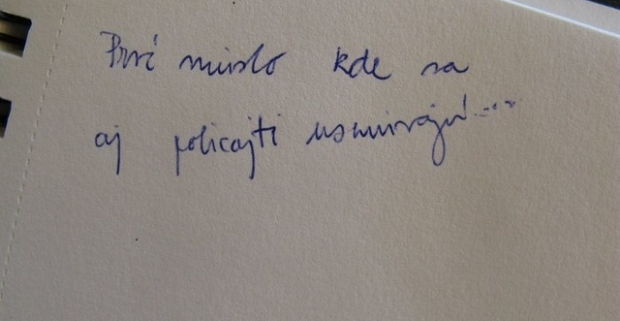 Prvé miesto kde sa
aj policajti usmievajú....